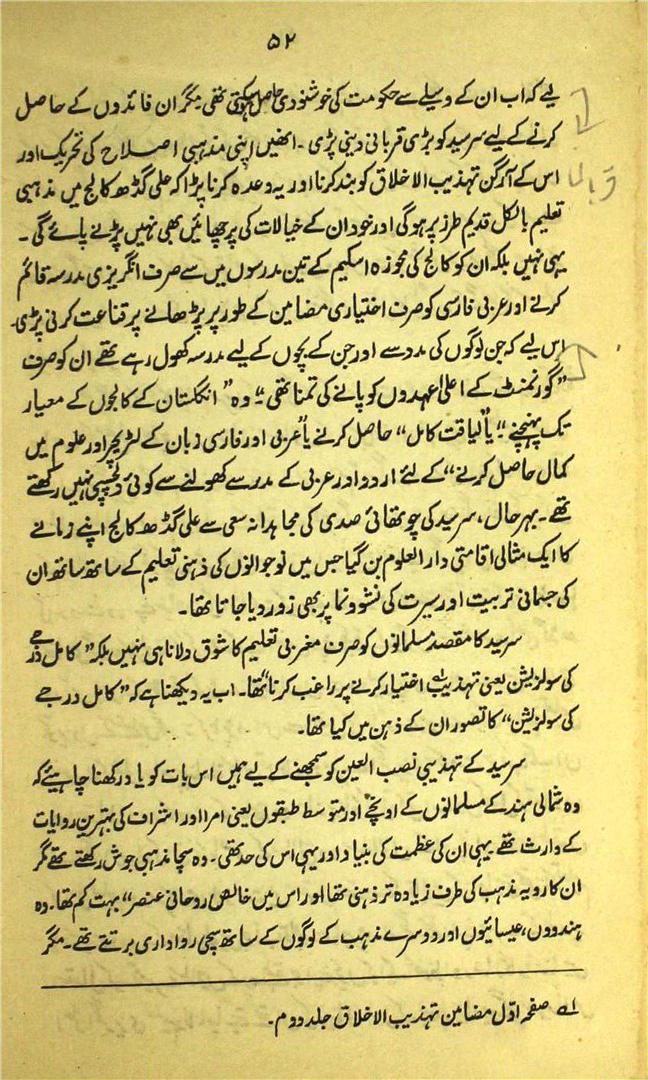 ۵۲
لیے کہ اب ان کے وسیلے سے حکومت کی خوشنودی حاصل ہوسکتی تھی مگر ان فائدوں کے حاصل
کرنے کے لیے سرسید کو بڑی قربانی دینی پڑی۔ انھیں اپنی مذہبی اصلاح کی تحریک اور
اس کے آرگن تہذیب الاخلاق کو بند کرنا اور یہ وعدہ کرنا پڑا کہ علی گڈھ کالج میں مذہبی
تعلیم بالکل قدیم طرز پر ہوگی اور خود ان کے خیالات کی پرچھائیں بھی نہیں پڑنے پائے گی۔
یہی نہیں بلکہ ان کو کالج کی مجوزہ اسکیم کے تین مدرسوں میں سے صرف انگریزی مدرسہ قائم
کرنے اور عربی فارسی کو صرف اختیاری مضامین کے طور پر پڑھانے پر قناعت کرنی پڑی۔
اس لیے کہ جن لوگوں کی مدد سے اور جن کے بچوں کے لیے مدرسہ کھول رہے تھے ان کو صرف
”گورنمنٹ کے اعلیٰ عہدوں کو پانے کی تمنا تھی“۔ وہ ”انگلستان کے کالجوں کے معیار
تک پہنچنے“ یا ”لیاقت کامل“ حاصل کرنے یا ”عربی اور فارسی زبان کے لٹریچر اور علوم میں
کمال حاصل کرنے“ کے لئے اردو اور عربی کے مدرسے کھولنے سے کوئی دلچسپی نہیں رکھتے
تھے۔ بہرحال، سرسید کی چوتھائی صدی کی مجاہدانہ سعی سے علی گڈھ کالج اپنے زمانے
کا ایک مثالی اقامتی دارالعلوم بن گیا جس میں نوجوانوں کی ذہنی تعلیم کے ساتھ ساتھ ان
کی جسمانی تربیت اور سیرت کی نشو و نما پر بھی زور دیا جاتا تھا۔
سرسید کا مقصد مسلمانوں کو صرف مغربی تعلیم کا شوق دلانا ہی نہیں بلکہ ”کامل درجے
کی سولزیشن یعنی تہذیب اختیار کرنے پر راغب کرنا تھا“۔ اب یہ دیکھنا ہے کہ ”کامل درجے
کی سولزیشن“ کا تصور ان کے ذہن میں کیا تھا۔
سرسید کے تہذیبی نصب العین کو سمجھنے کے لیے ہمیں اس بات کو یاد رکھنا چاہیئے کہ
وہ شمالی ہند کے مسلمانوں کے اونچے اور متوسط طبقوں یعنی امرا اور اشراف کی بہترین روایات
کے وارث تھے یہی ان کی عظمت کی بنیاد اور یہی اس کی حد تھی۔ وہ سچا مذہبی جوش رکھتے تھے مگر
ان کا رویہ مذہب کی طرف زیادہ تر ذہنی تھا اور اس میں خالص روحانی عنصر“ بہت کم تھا۔ وہ
ہندووں، عیسائیوں اور دوسرے مذہب کے لوگوں کے ساتھ سچی رواداری برتتے تھے۔ مگر
لہ صفحہ اوّل مضامین تہذیب الاخلاق جلد دوم۔